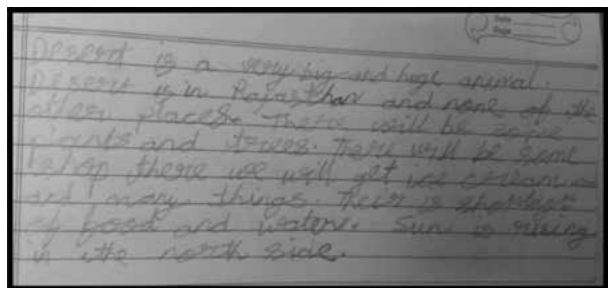 Date
Page
Desert is a very big and huge animal.
Desert is in Rajasthan and none of the
other places. There will be some
plants and trees. There will be some
shop there we will get ice cream
and many things. Their is shortest
of food and water. Sun is rising
in the north side.